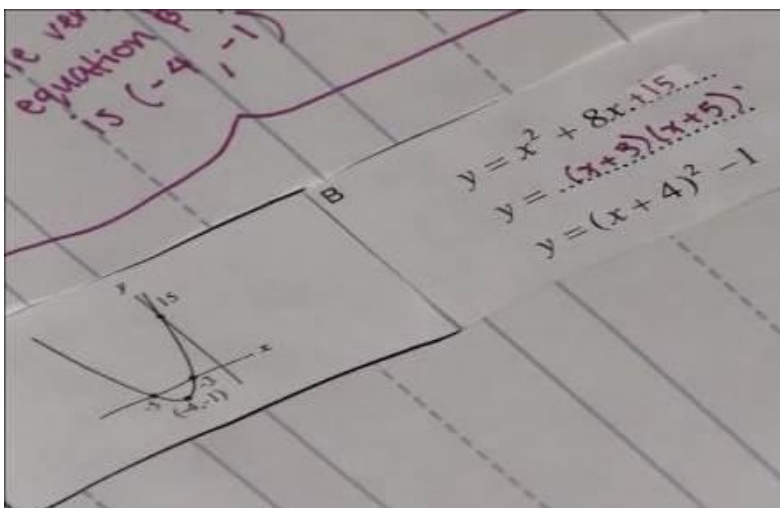 equation
is (-4, -1)
B
y = x² + 8x +15
y = (x+3)(x+5)
y = (x + 4)² − 1
y
15
x
-3
-5
(-4,-1)